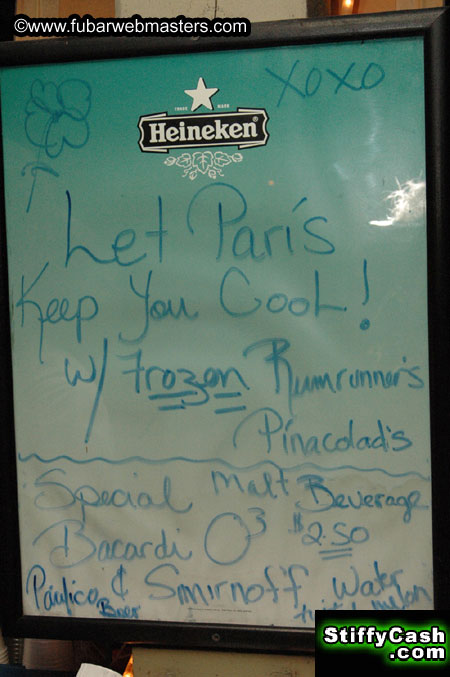 © www.fubarwebmasters.com
XOXO
TRADE MARK
Heineken
Let Paris
Keep You Cool!
w/ Frozen Rumrunner's
Pinacolad's
Special Malt Beverage
Bacardi O3 $2.50
& Smirnoff Water
Beer
StiffyCash
.com